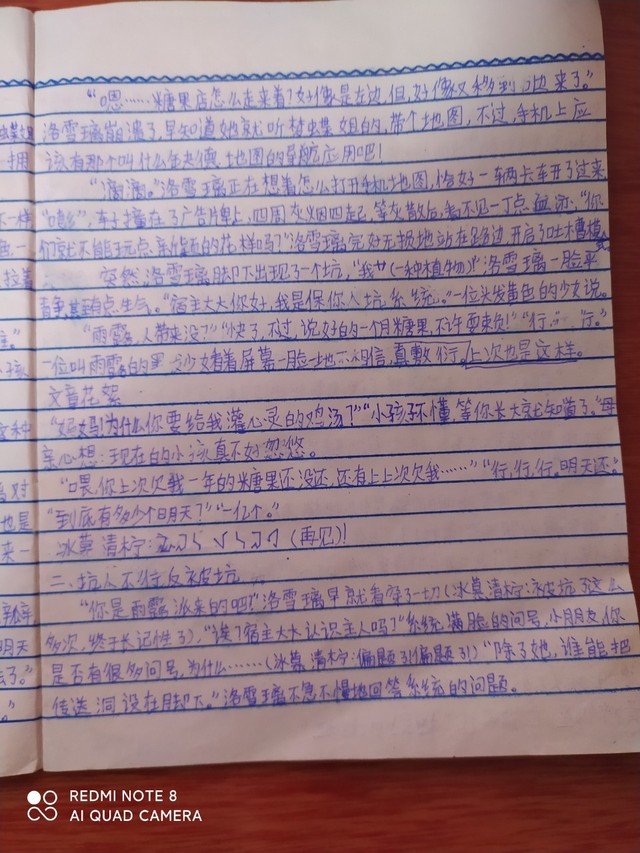 “嗯……糖果店怎么走来着?好像是左边,但,好像又移到边来了。”
洛雪璃崩溃了,早知道她就听梦出集姐的,带个地图,不过,手机上应
该有那个叫什么年地图的导航应用吧!
“滴滴。”洛雪璃正在想着怎么打开手机地图,恰好一辆卡车开了过来,
车子撞在了广告牌上,四周灰烟四起,等灰散后,看不见一丁点血,“你
们就不能玩点新颖的花样吗?”洛雪璃完好无损地站在路边,开启了吐槽模
突然,洛雪璃脚下出现了一个坑,“我艹(一种植物)!”洛雪璃一脸平
静,甚至有点生气。“宿主大大你好,我是保你入坑系统。”一位头发黄色的少女说。
“雨露,人带来没?”“快了,不过,说好的一个月糖果,不许耍赖!”“行,行。”
一位叫雨露的少女看着屏幕一脸地不相信,真敷衍,上次也是这样。
文章花絮
“妈妈!为什么你要给我灌心灵的鸡汤?”“小孩子不懂,等你长大就知道了。”母
亲心想:现在的小孩真不好忽悠。
“喂,你上次欠我一年的糖果还没还,还有上上次欠我……”“行,行,行。明天还。”
“到底有多少个明天?”“一亿个。”
冰莫清柠:(再见)!
二、坑人不行反被坑
“你是雨露派来的吧!”洛雪璃早就看穿了一切(冰莫清柠:被坑了这么
多次,终于长记性了),“诶?宿主大大认识主人吗?”系统满脸的问号,小朋友你
是否有很多问号,为什么……(冰莫清柠:偏题了!偏题了!)“除了她,谁能把
传送洞设在脚下。”洛雪璃不急不慢地回答系统的问题。
REDMI NOTE 8
AI QUAD CAMERA